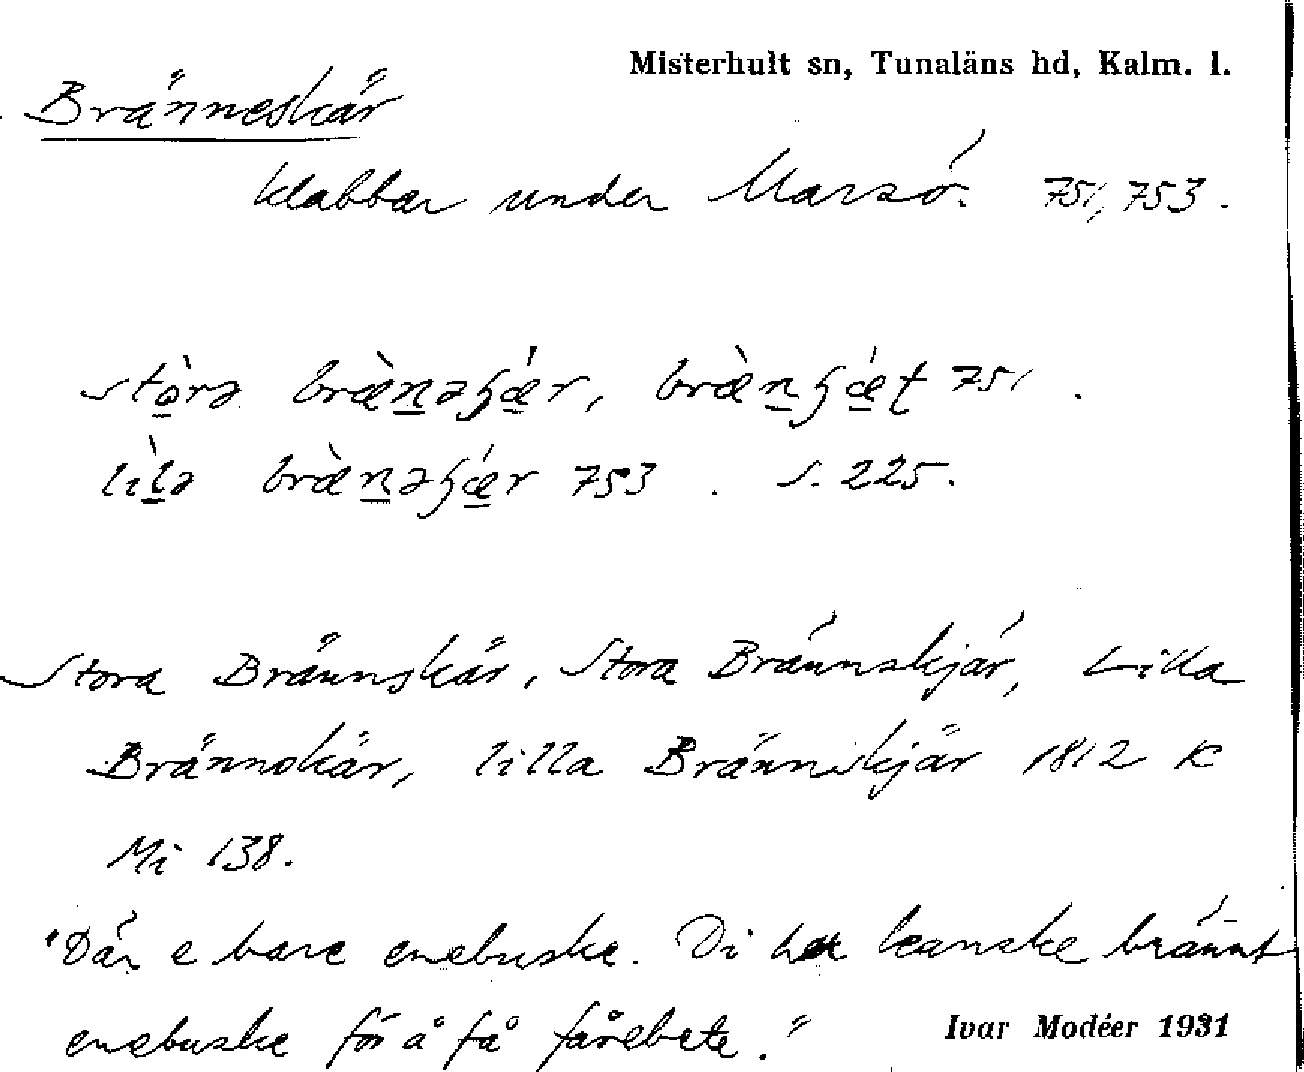 Misterhult sn, Tunaläns hd, Kalm. l.
Bränneskär
klabbar under Marsö. 751, 753.
stòrə bræ̀nəʂǽr, bræ̀nʂǽt 751.
lìlə bræ̀nəʂǽr 753. s. 225.
Stora Brännskär, Stora Brännskjär, Lilla
Brännskär, lilla Brännskjär 1812 K
Mi 138.
"Där e bare enebuske. Di har kanske bränt
enebuske för å få fårebete."
Ivar Modéer 1931